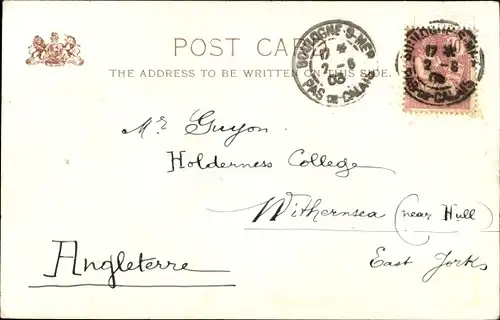 POST CARD
THE ADDRESS TO BE WRITTEN ON THIS SIDE.
BOULOGNE-S-MER
17 *
2-6
03
PAS-DE-CALAIS
17 *
2-6
03
PAS-DE-CALAIS
Mr Guyon
Holderness College
Withernsea (near Hull)
East Yorks
Angleterre